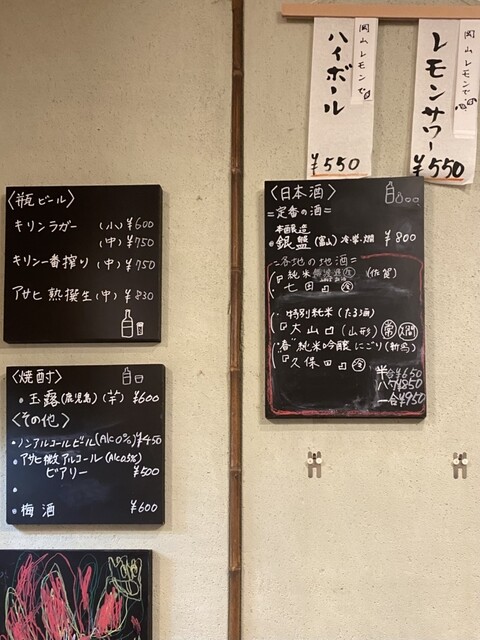 岡山レモンで
ハイボール
¥550
岡山レモンで
レモンサワー
¥550
〈瓶ビール〉
キリンラガー (小) ¥600
(中) ¥750
キリン一番搾り (中) ¥750
アサヒ 熟撰生 (中) ¥830
〈焼酎〉
・玉露(鹿児島)(芋) ¥600
〈その他〉
・ノンアルコールビール(Alc0%) ¥450
・アサヒ微アルコール(Alc0.5%)
ビアリー ¥500
・
・梅酒 ¥600
〈日本酒〉
=定番の酒=
本醸造
・銀盤(富山)冷・常・燗 ¥800
=各地の地酒=
・純米 (佐賀)
『七田』 冷
・特別純米(たる酒)
『大山』(山形) 常 燗
・"春"純米吟醸 にごり(新潟)
『久保田』 冷
半合¥650
一合¥950